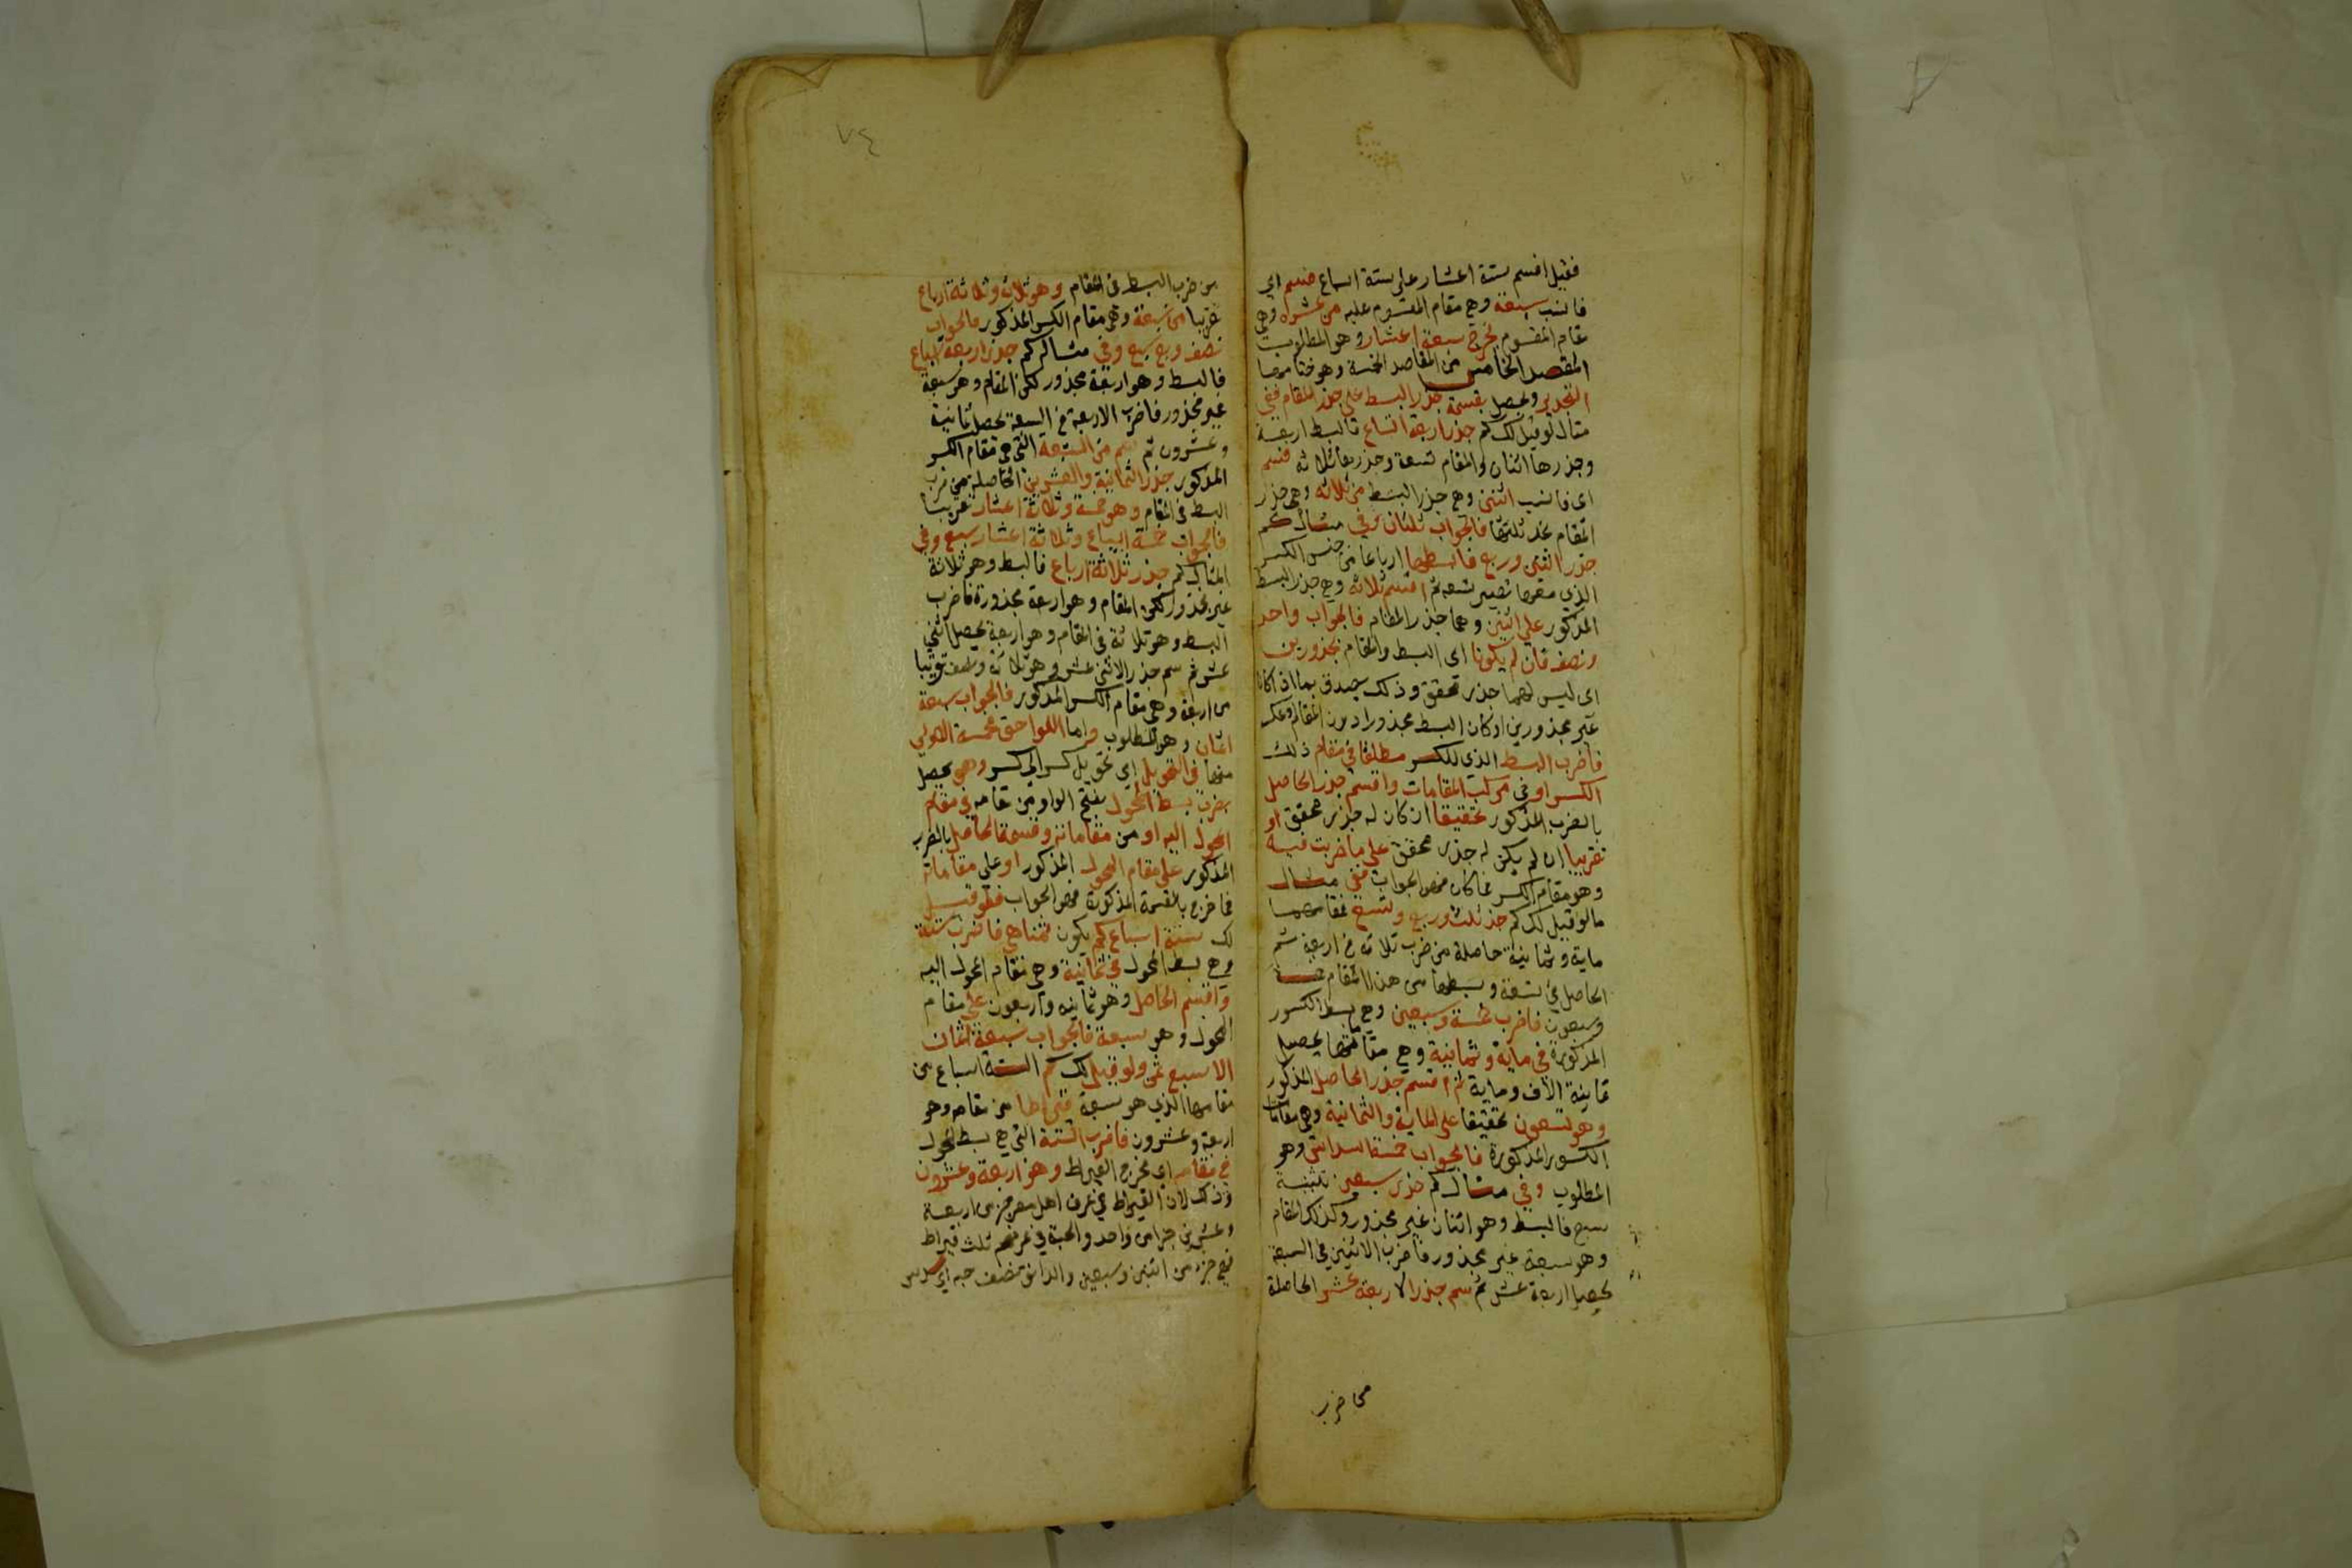 فقيل اقسم ستة اعشار على ستة اسباع فسم اي
فانسب سبعة وهي مقام المقسوم عليه من عشرة وهي
مقام المقسوم يخرج سبعة اعشار وهو المطلوب
المقصد الخامس من المقاصد الخمسة وهو ختامها
التجذير ويحصل بقسمة جذر البسط على جذر المقام ففي
مثال لو قيل لك كم جذر اربعة اتساع فالبسط اربعة
وجذرها اثنان والمقام تسعة وجذرها ثلاثة فسم
اي فانسب اثنين وهي جذر البسط من ثلاثة وهي جذر
المقام تجد ثلثها فالجواب ثلثان وفي مثال كم
جذر اثنين وربع فابسطها ارباعا من جنس الكسر
الذي معها تصير تسعة ثم اقسم ثلاثة وهي جذر البسط
المذكور على اثنين وهما جذر المقام فالجواب واحد
ونصف فان لم يكونا اي البسط والمقام مجذورين
اي ليس لهما جذر تحقق وذلك يصدق بما اذا كانا
غير مجذورين او كان البسط مجذورا دون المقام وعكسه
فاضرب البسط الذي للكسر مطلقا في مقام ذلك
الكسر او في مركب المقامات واقسم جذر الحاصل
بالضرب المذكور تحقيقا ان كان له جذر محقق او
تقريبا ان لم يكن له جذر محقق على ما ضربت فيه
وهو مقام الكسر فما كان فهو الجواب ففي مثال
ما لو قيل لك كم جذر ثلث وربع وتسع فمقامها
ماية وثمانية حاصلة من ضرب ثلاثة في اربعة ثم
الحاصل في تسعة وبسطها من هذا المقام خمسة
وسبعون فاضرب خمسة وسبعين وهي بسط الكسور
المذكورة في ماية وثمانية وهي مقامها يحصل
ثمانية الاف وماية ثم اقسم جذر الحاصل المذكور
وهو تسعون تحقيقا على الماية والثمانية وهي مقامات
الكسور المذكورة فالجواب خمسة اسداس وهو
المطلوب وفي مثال كم جذر سبعين تثنية
سبع فالبسط وهو اثنان غير مجذور وكذلك المقام
وهو سبعة غير مجذور فاضرب الاثنين في السبعة
يحصل اربعة عشر ثم سم جذر الاربعة عشر الحاصلة
من ضرب
٧٤
من ضرب البسط في المقام وهو ثلاثة وثلاثة ارباع
تقريبا من سبعة وهي مقام الكسر المذكور فالجواب
نصف وربع سبع وفي مثال كم جذر اربعة اسباع
فالبسط وهو اربعة مجذور لكن المقام وهو سبعة
غير مجذور فاضرب الاربعة في السبعة يحصل ثمانية
وعشرون ثم سم من السبعة التي هي مقام الكسر
المذكور جذر الثمانية والعشرين الحاصلة من ضرب
البسط في المقام وهو خمسة وثلاثة اعشار تقريبا
فالجواب خمسة اسباع وثلاثة اعشار سبع وفي
المثال كم جذر ثلاثة ارباع فالبسط وهو ثلاثة
غير مجذور لكن المقام وهو اربعة مجذورة فاضرب
البسط وهو ثلاثة في المقام وهو اربعة يحصل اثني
عشر ثم سم جذر الاثني عشر وهو ثلاثة ونصف تقريبا
من اربعة وهي مقام الكسر المذكور فالجواب سبعة
اثمان وهو المطلوب واما اللواحق فخمسة الاولى
منها في التحويل اي تحويل كسر الى كسر وهي يحصل
بضرب بسط المحول بفتح الواو من مقامه في مقام
المحول اليه او من مقاماته وقسمة الحاصل بالضرب
المذكور على مقام المحول المذكور او على مقاماته
فما خرج بالقسمة المذكورة فهو الجواب فلو قيل
لك ستة اسباع كم يكون ثمنا هي فاضرب ستة
وهي بسط المحول في ثمانية وهي مقام المحول اليه
واقسم الحاصل وهو ثمانية واربعون على مقام
المحول وهو سبعة فالجواب سبعة اثمان
الا سبع ثمن ولو قيل لك كم الستة اسباع من
مقامها الذي هو سبعة قيراطا من مقامه وهو
اربعة وعشرون فاضرب الستة التي هي بسط المحول
في مقام اي مخرج القيراط وهو اربعة وعشرون
وذلك لان القيراط في عرف اهل مصر جزء من اربعة
وعشرين جزا من واحد والحبة في عرفهم ثلث قيراط
فهي جزء من اثنين وسبعين والدانق نصف حبة اي سدس